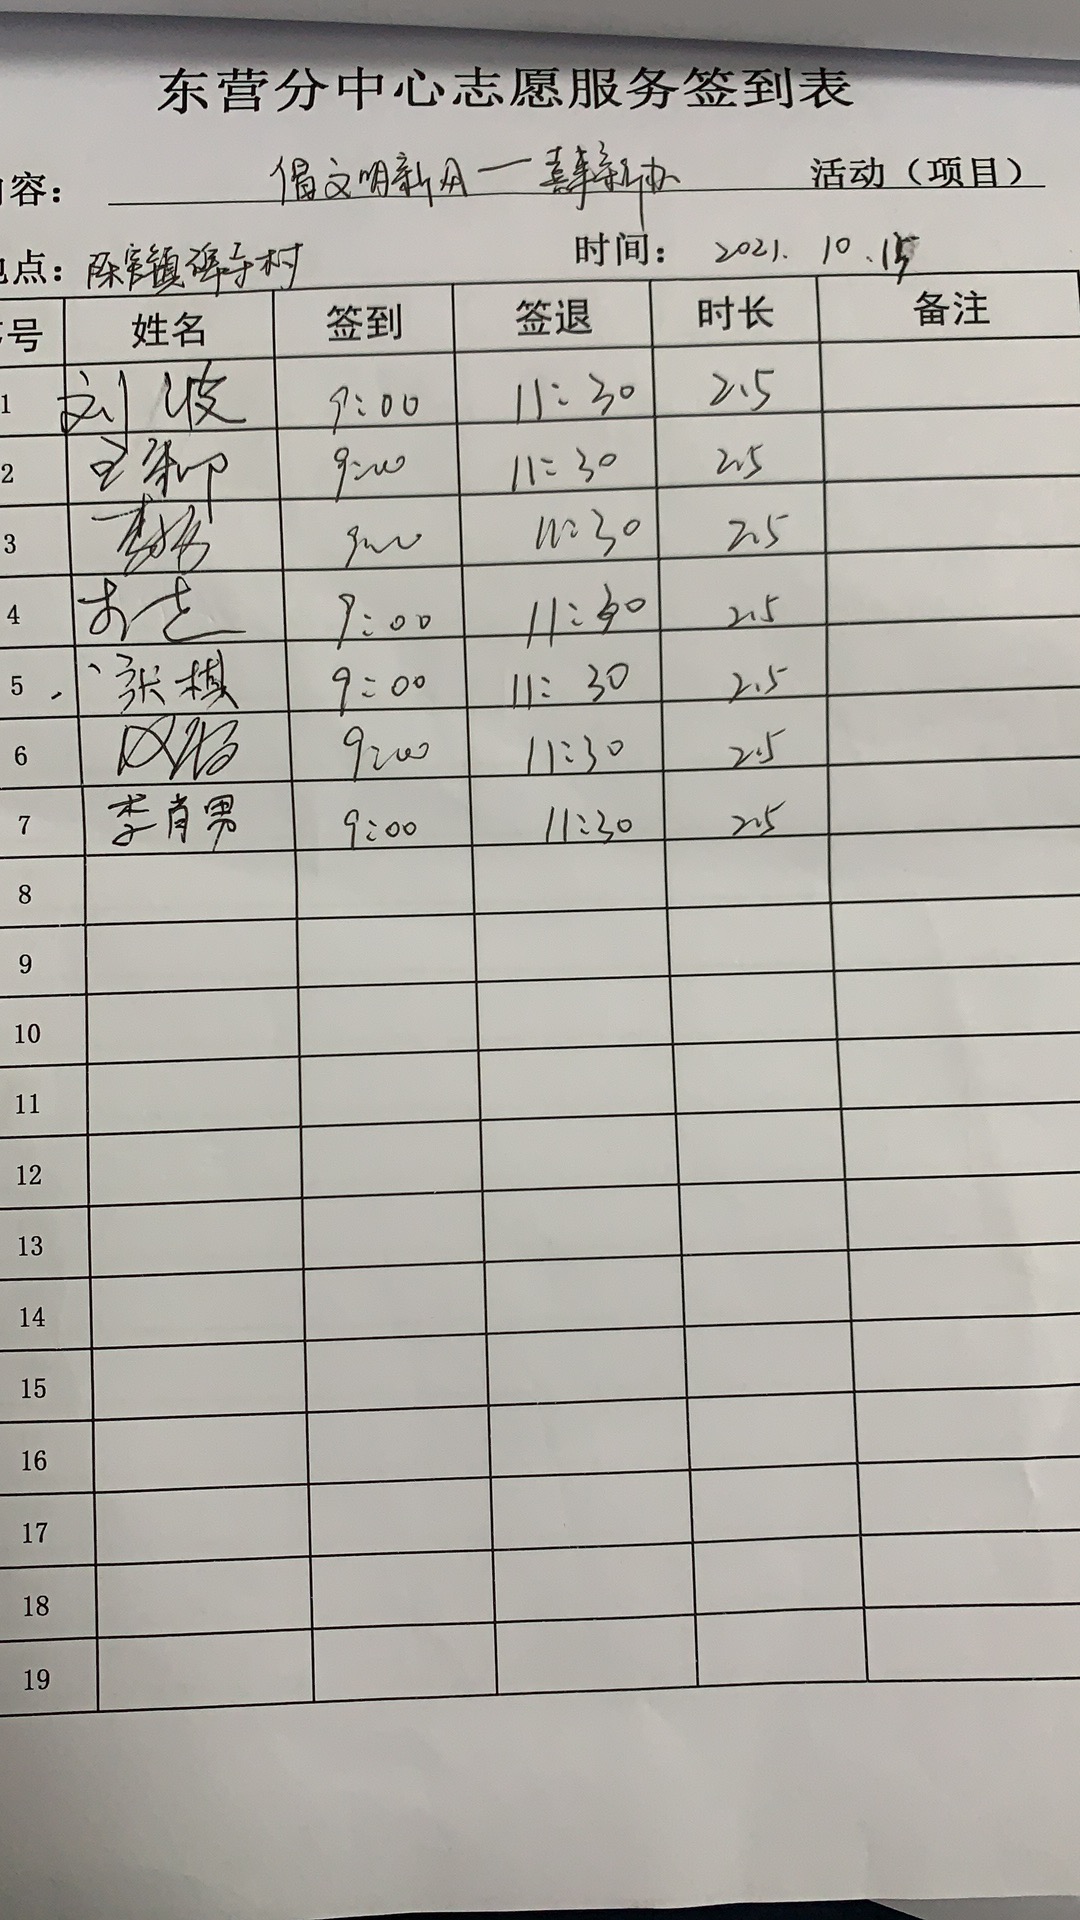 东营分中心志愿服务签到表
容： 倡文明新风一喜事新办 活动（项目）
点：陈官镇 村 时间： 2021. 10 .15
号 姓名 签到 签退 时长 备注
1 刘波 9:00 11:30 2.5
2 9:00 11:30 2.5
3 9:00 11:30 2.5
4 9:00 11:30 2.5
5 张棋 9:00 11:30 2.5
6 9:00 11:30 2.5
7 李肖男 9:00 11:30 2.5
8
9
10
11
12
13
14
15
16
17
18
19